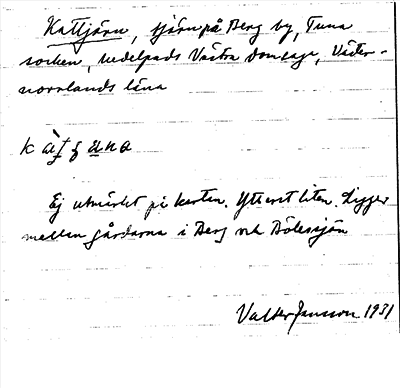 Kattjärn, tjärn på Berg by, Tuna
socken, Medelpads Västra domsaga, Väster-
norrlands läns
Ej utmärkt på kartan. Ytterst liten. Ligger
mellan gårdarna i Berg och Bölessjön
Valter Jansson 1931